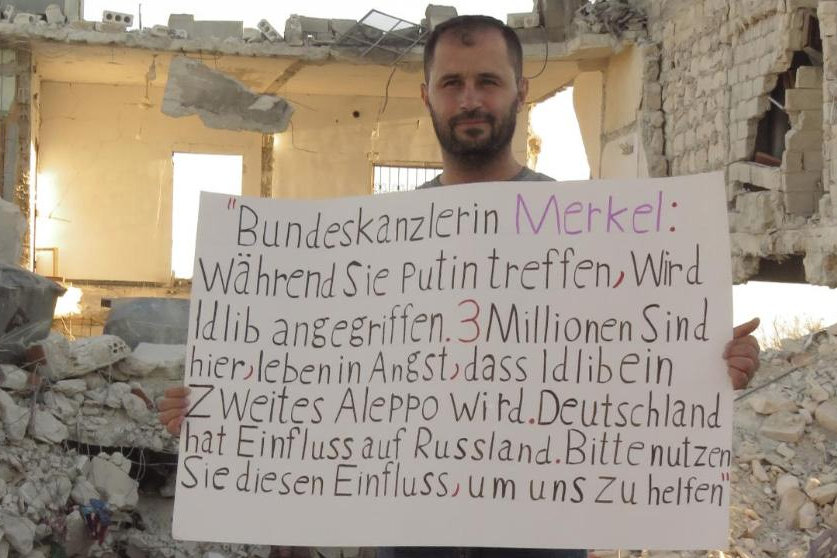 "Bundeskanzlerin Merkel:
Während Sie Putin treffen, Wird
Idlib angegriffen. 3 Millionen Sind
hier, leben in Angst, dass Idlib ein
Zweites Aleppo wird. Deutschland
hat Einfluss auf Russland. Bitte nutzen
Sie diesen Einfluss, um uns zu helfen"